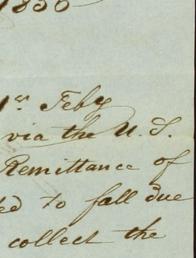 1850
1st Feby
via the U.S.
Remittance of
ed to fall due
collect the